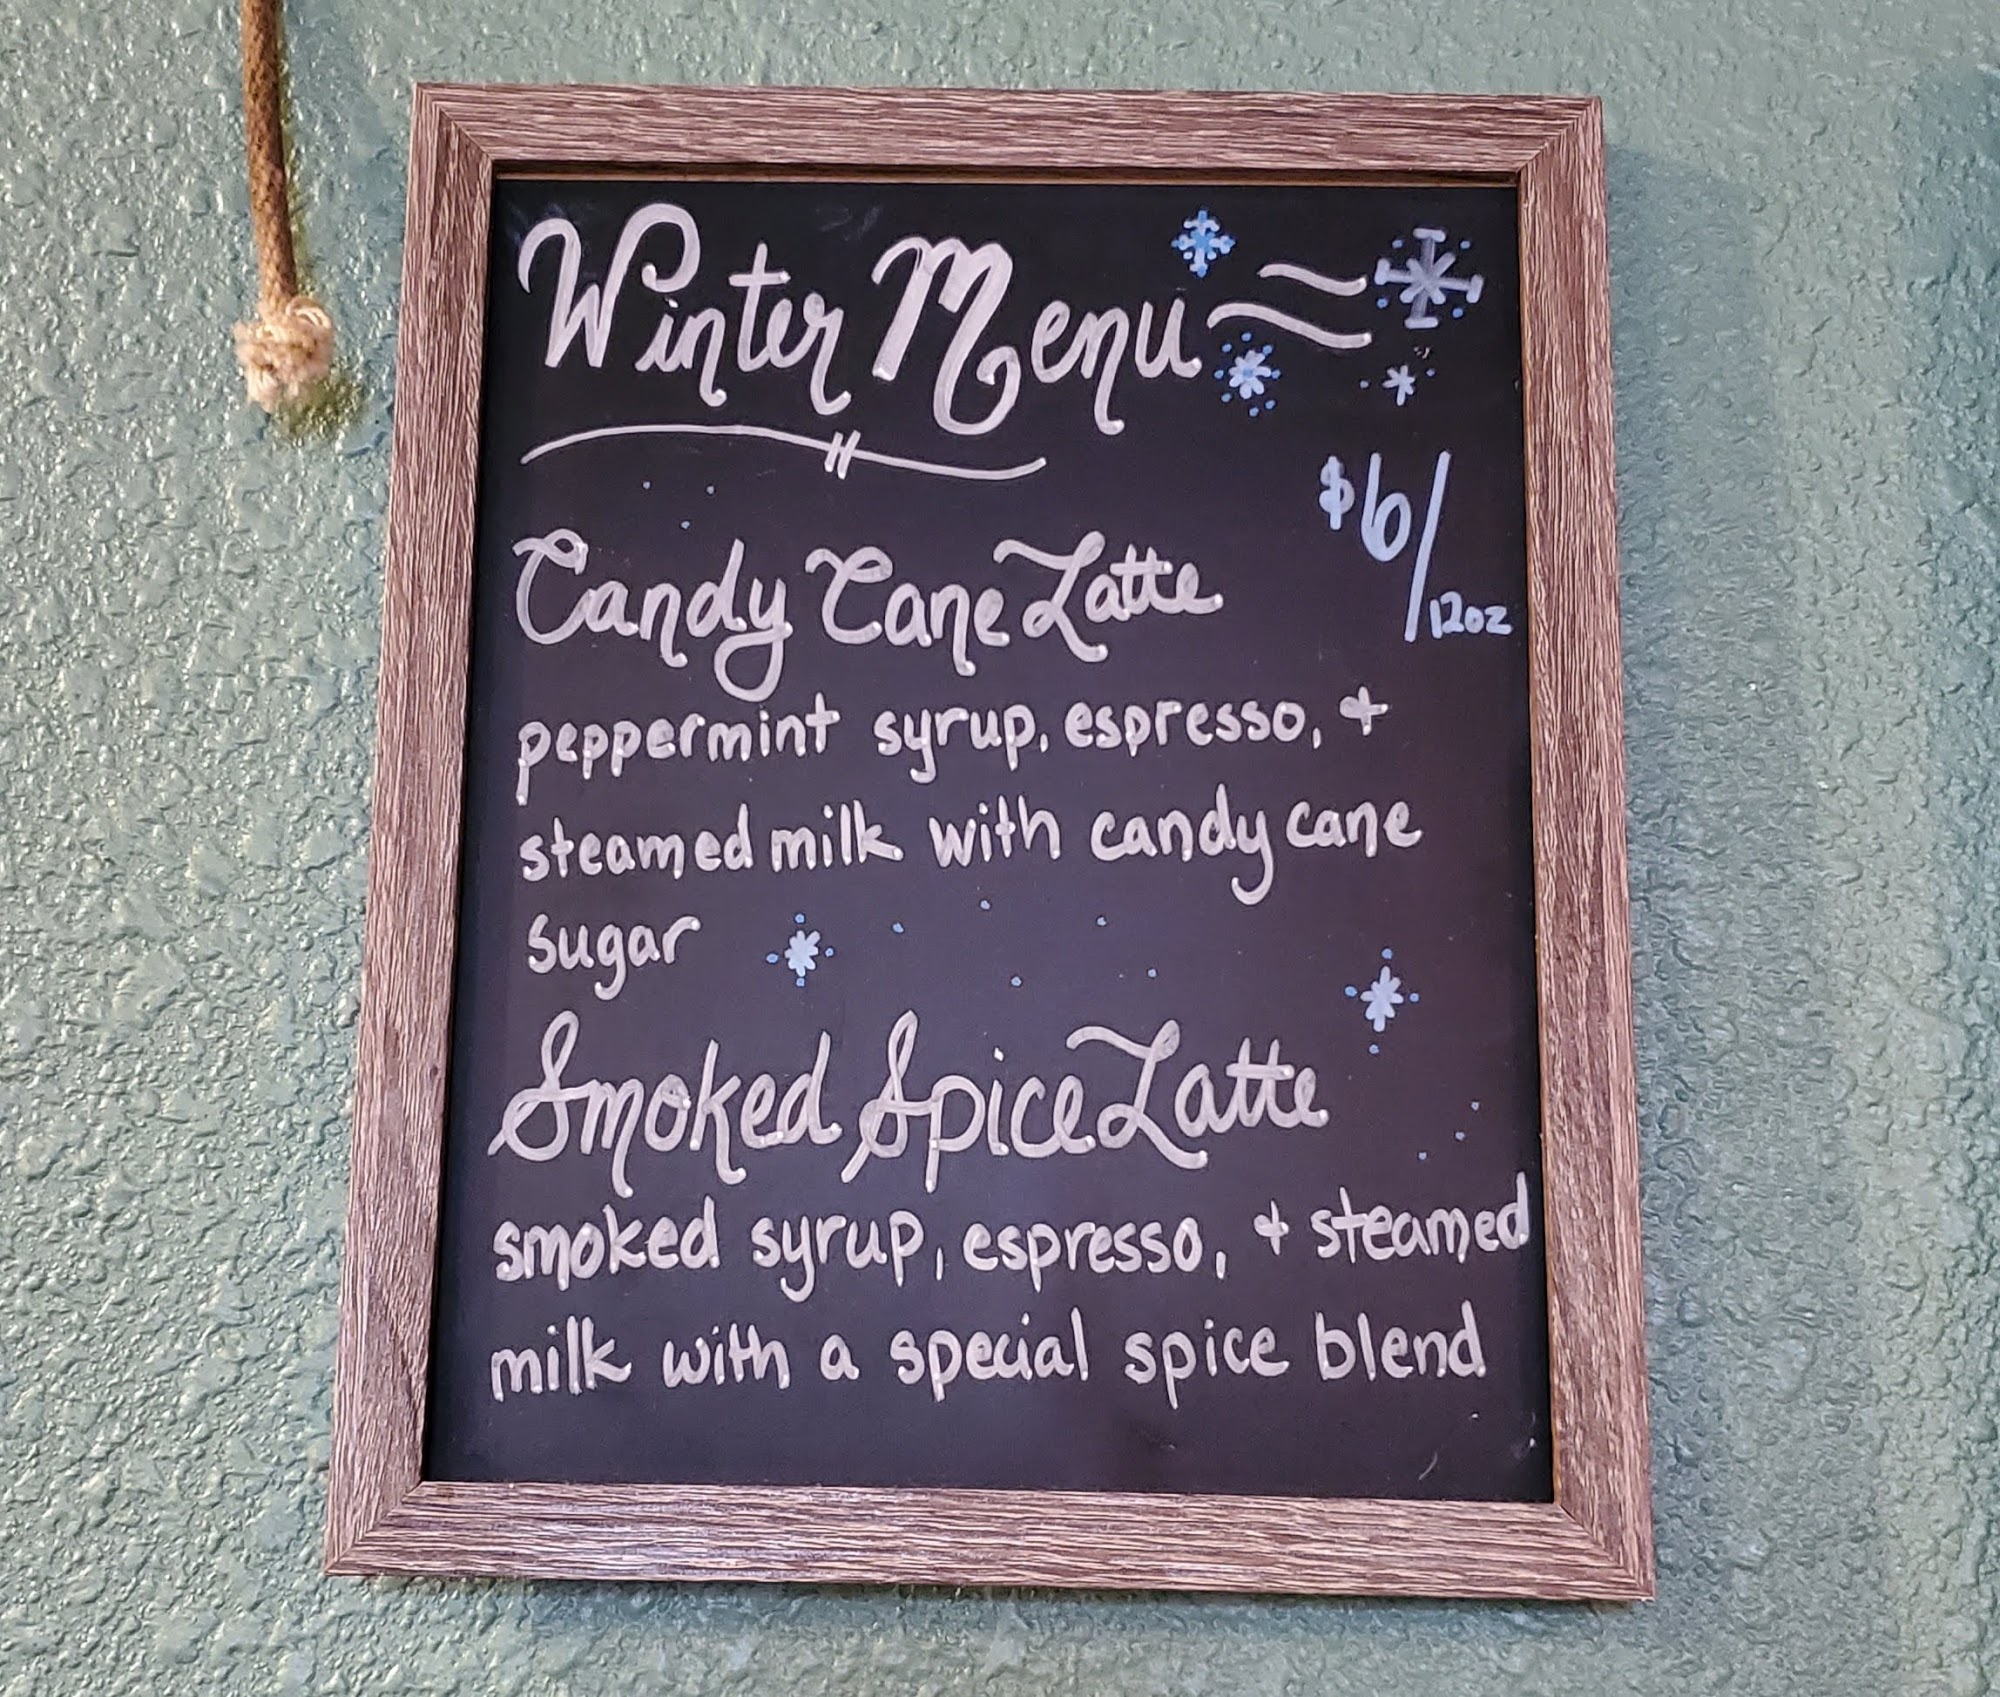 Winter Menu
$6/12oz
Candy Cane Latte
peppermint syrup, espresso, +
steamed milk with candy cane
sugar
Smoked Spice Latte
smoked syrup, espresso, + steamed
milk with a special spice blend